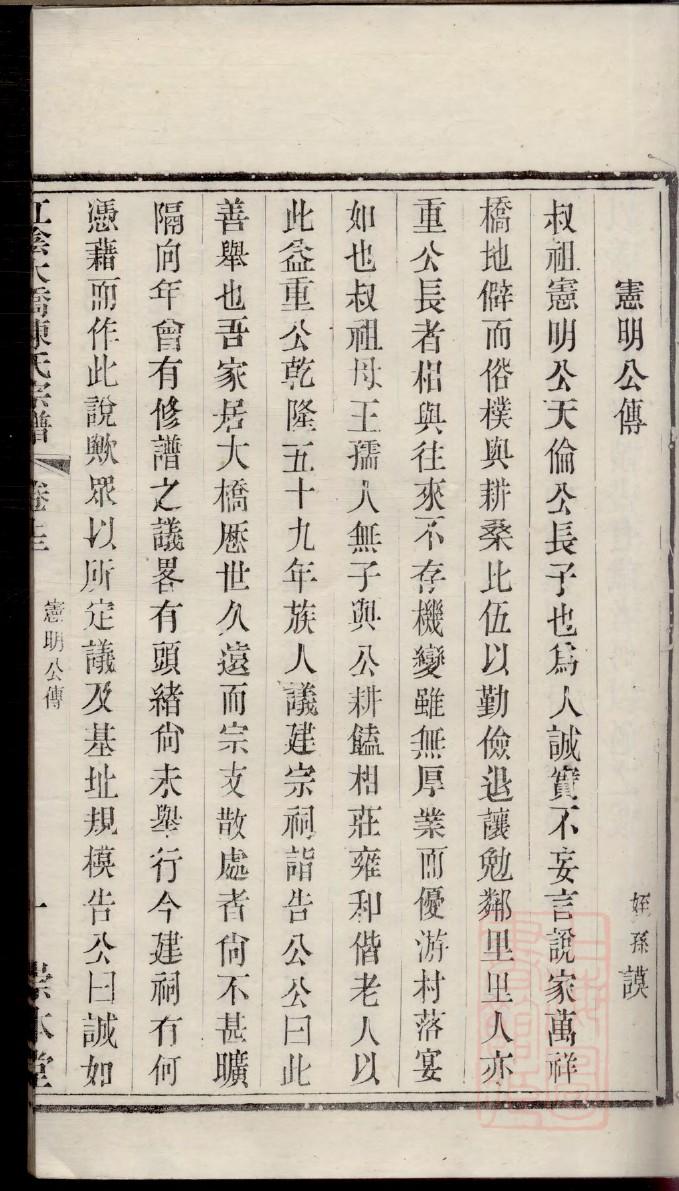 憲明公傳
姪孫謨
叔祖憲明公天倫公長子也爲人誠實不妄言說家萬祥
橋地僻而俗樸與耕桑比伍以勤儉退讓勉鄰里里人亦
重公長者相與往來不存機變雖無厚業而優游村落宴
如也叔祖母王孺人無子與公耕饁相莊雍和偕老人以
此益重公乾隆五十九年族人議建宗祠詣告公公曰此
善舉也吾家居大橋歷世久遠而宗支散處者尙不甚曠
隔向年曾有修譜之議畧有頭緒尙未舉行今建祠有何
憑藉而作此說歟眾以所定議及基址規模告公曰誠如
江陰大橋陳氏宗譜
卷十三
憲明公傳
一
崇本堂